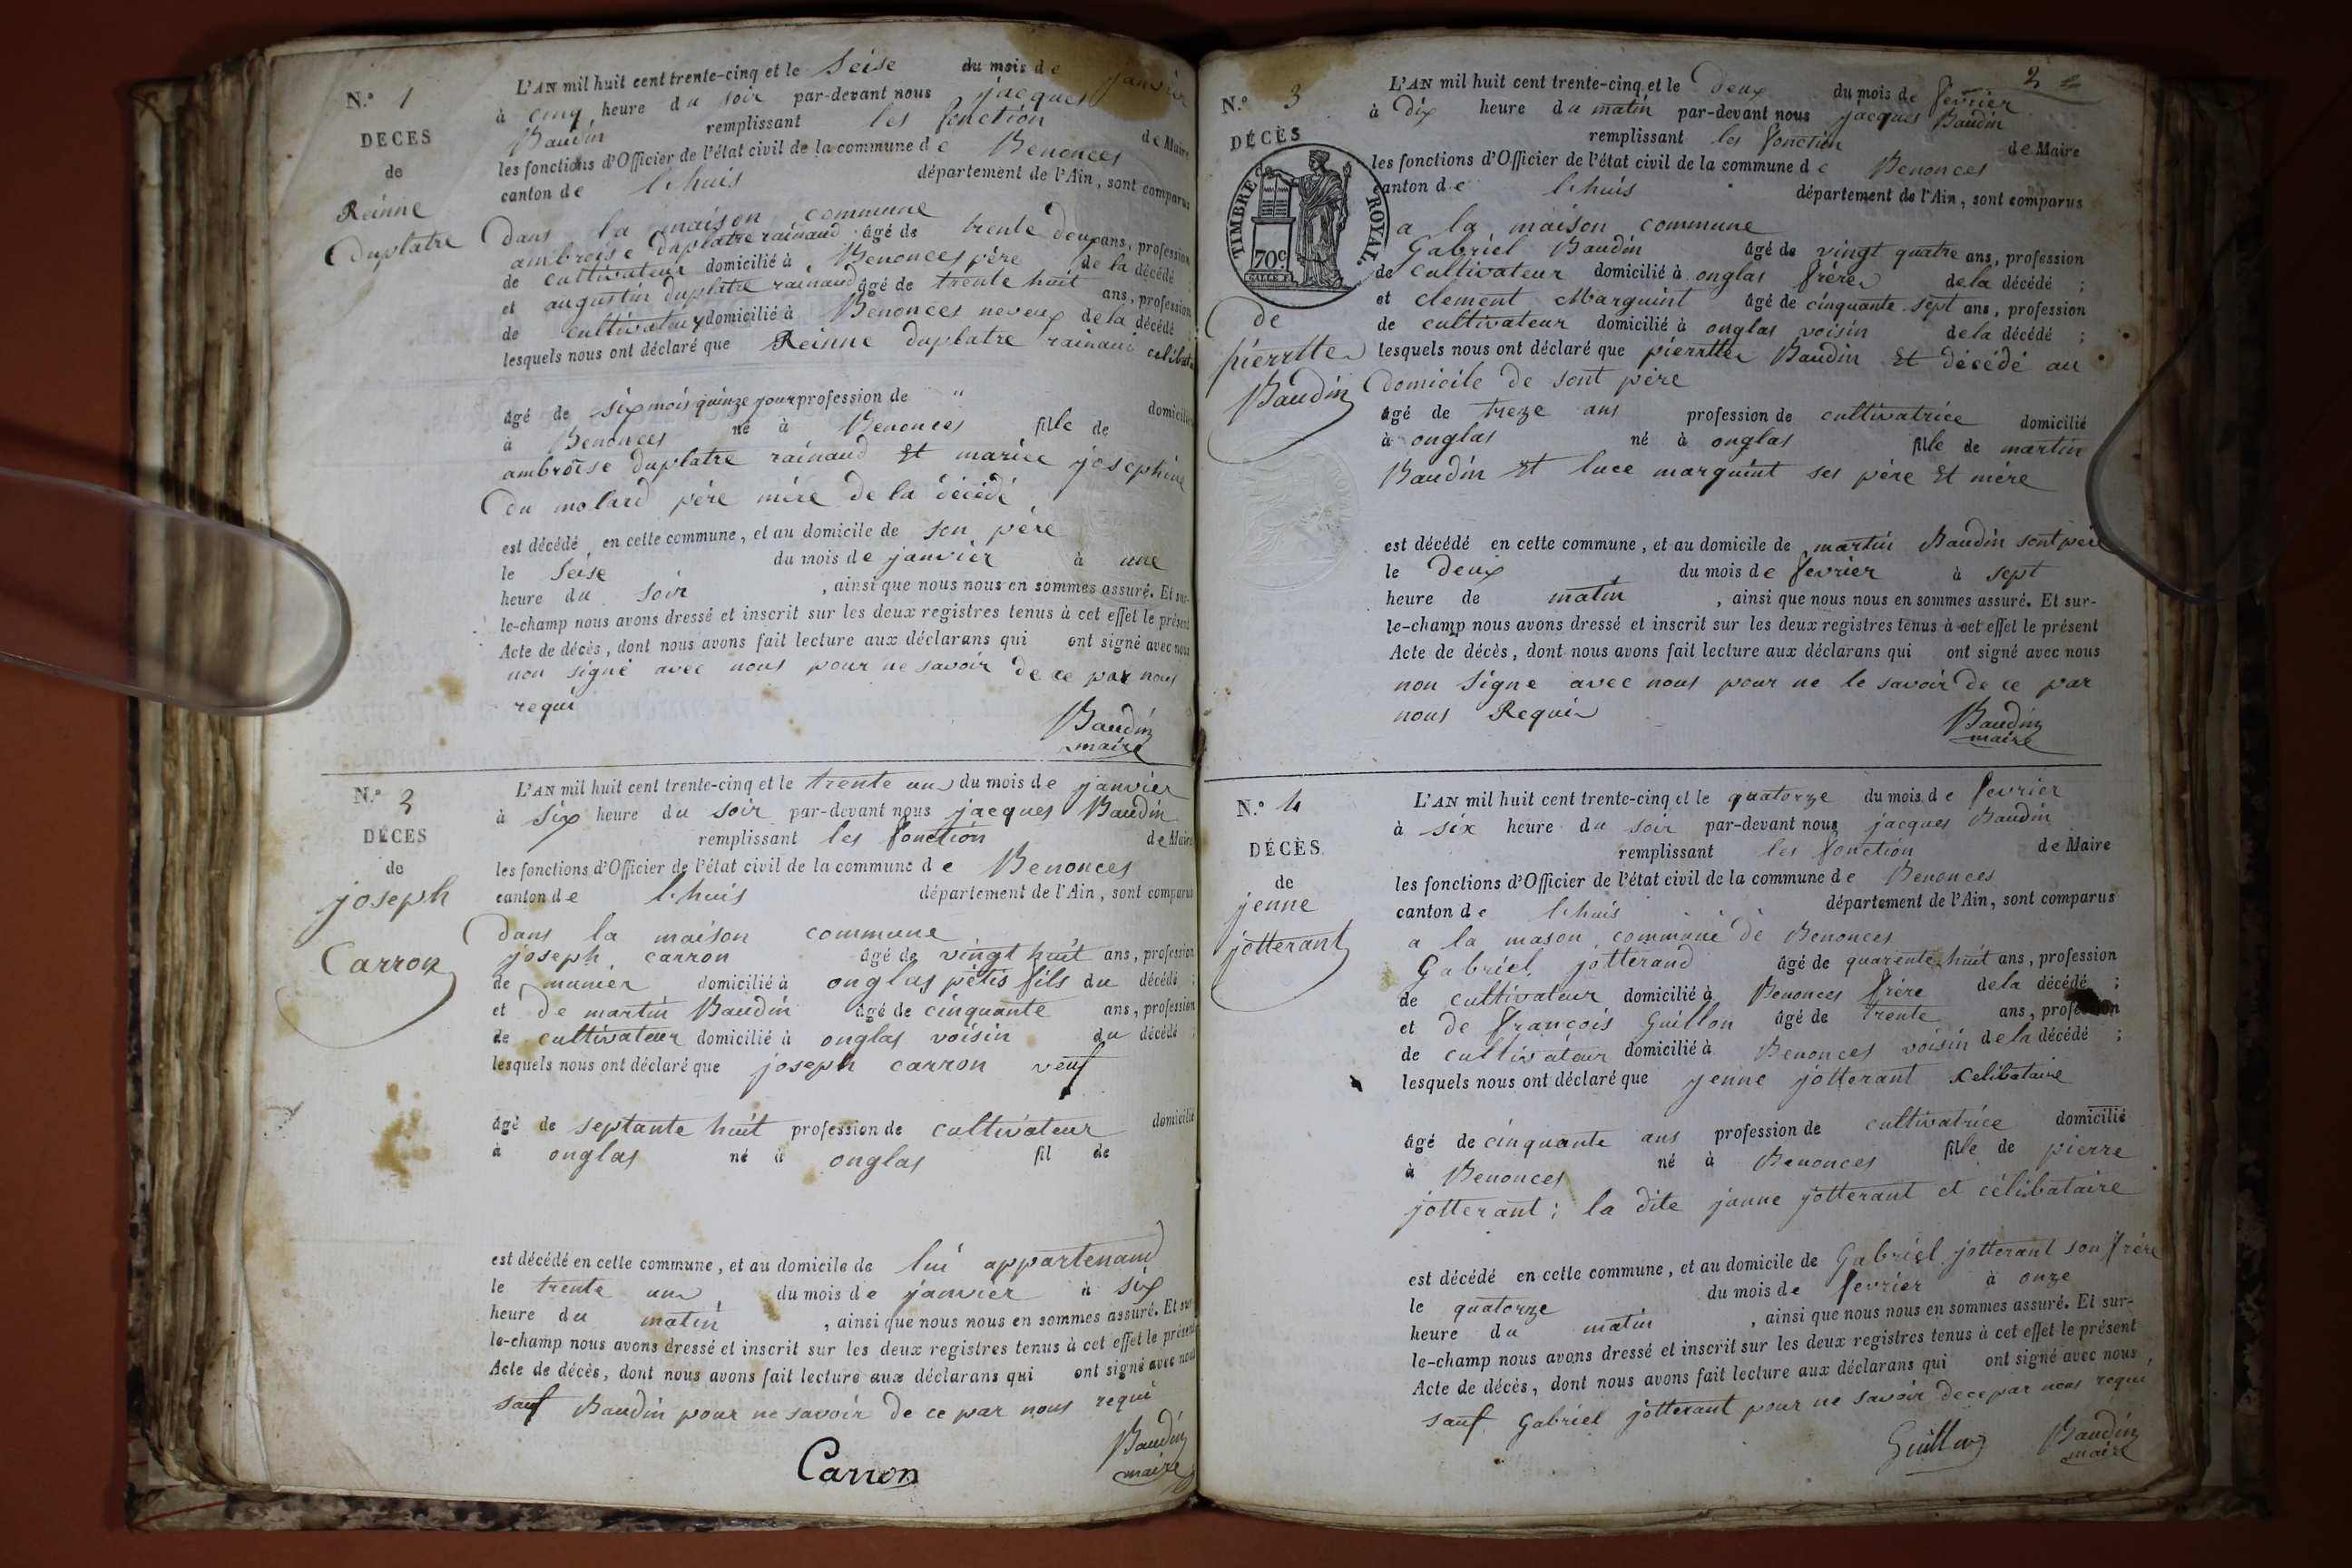 N.° 1
DÉCES
de
Reinne
Duplatre
L'AN mil huit cent trente-cinq et le seise du mois de janvier
à cinq heure du soir par-devant nous jacques
Baudin remplissant les fonction de Maire
les fonctions d'Officier de l'état civil de la commune de Benonces
canton de l'huis département de l'Ain, sont comparus
Dans la maison commune
ambroise Duplatre rainaud âgé de trente Deux ans, profession
de cultivateur domicilié à Benonces père de la décédé
et augustin Duplatre rainaud âgé de trente huit ans, profession
de cultivateur domicilié à Benonces neveux de la décédé
lesquels nous ont déclaré que Reinne duplatre rainaud celibat
âgé de six mois quinze jour profession de " domicilié
à Benonces né à Benonces fille de
ambroise Duplatre rainaud et mariee josephine
Du molard père mère de la décédé
est décédé en cette commune, et au domicile de son père
le seise du mois de janvier à une
heure du soir, ainsi que nous nous en sommes assuré. Et sur-
le-champ nous avons dressé et inscrit sur les deux registres tenus à cet effet le présent
Acte de décès, dont nous avons fait lecture aux déclarans qui ont signé avec nous
non signé avec nous pour ne savoir de ce par nous
requi
Baudin
maire
N.° 2
DÉCES
de
joseph
Carron
L'AN mil huit cent trente-cinq et le trente un du mois de janvier
à six heure du soir par-devant nous jacques Baudin
remplissant les fonction de Maire
les fonctions d'Officier de l'état civil de la commune de Benonces
canton de l'huis département de l'Ain, sont comparus
Dans la maison commune
joseph carron âgé de vingt huit ans, profession
de munier domicilié à onglas pétis fils du décédé ;
et de martin Baudin âgé de cinquante ans, profession
de cultivateur domicilié à onglas voisin du décédé ;
lesquels nous ont déclaré que joseph carron veuf
âgé de septante huit profession de cultivateur domicilié
à onglas né à onglas fil de
est décédé en cette commune, et au domicile de lui appartenand
le trente un du mois de janvier à six
heure du matin, ainsi que nous nous en sommes assuré. Et sur
le-champ nous avons dressé et inscrit sur les deux registres tenus à cet effet le présent
Acte de décès, dont nous avons fait lecture aux déclarans qui ont signé avec nous
sauf Baudin pour ne savoir de ce par nous requi
Carron
Baudin
maire
2
N.° 3
DÉCÈS
TIMBRE ROYAL.
70c
de
pierrette
Baudin
L'AN mil huit cent trente-cinq et le Deux du mois de fevrier
à Dix heure du matin par-devant nous jacques Baudin
remplissant les fonction de Maire
les fonctions d'Officier de l'état civil de la commune de Benonces
canton de l'huis département de l'Ain, sont comparus
a la maison commune
Gabriel Baudin âgé de vingt quatre ans, profession
de cultivateur domicilié à onglas frère de la décédé ;
et clement Marguint âgé de cinquante sept ans, profession
de cultivateur domicilié à onglas voisin de la décédé ;
lesquels nous ont déclaré que pierrette Baudin et décédé au
Domicile de sont père
âgé de treze ans profession de cultivatrice domicilié
à onglas né à onglas fille de martin
Baudin et luce marguint ses père et mère
est décédé en cette commune, et au domicile de martin Baudin sont père
le Deux du mois de fevrier à sept
heure de matin, ainsi que nous nous en sommes assuré. Et sur-
le-champ nous avons dressé et inscrit sur les deux registres tenus à cet effet le présent
Acte de décès, dont nous avons fait lecture aux déclarans qui ont signé avec nous
non signe avec nous pour ne le savoir de ce par
nous Requi
Baudin
maire
N.° 4
DÉCÈS
de
jenne
jotterant
L'AN mil huit cent trente-cinq et le quatorze du mois de fevrier
à six heure du soir par-devant nous jacques Baudin
remplissant les fonction de Maire
les fonctions d'Officier de l'état civil de la commune de Benonces
canton de l'huis département de l'Ain, sont comparus
a la mason commune de Benonces
Gabriel jotterand âgé de quarente huit ans, profession
de cultivateur domicilié à Benonces frère de la décédé ;
et de francois Guillon âgé de trente ans, profession
de cultivateur domicilié à Benonces voisin de la décédé ;
lesquels nous ont déclaré que jenne jotterant celibataire
âgé de cinquante ans profession de cultivatrice domicilié
à Benonces né à Benonces fille de pierre
jotterant ; la dite janne jotterant et célibataire
est décédé en cette commune, et au domicile de Gabriel jotterant son frère
le quatorze du mois de fevrier à onze
heure du matin, ainsi que nous nous en sommes assuré. Et sur-
le-champ nous avons dressé et inscrit sur les deux registres tenus à cet effet le présent
Acte de décès, dont nous avons fait lecture aux déclarans qui ont signé avec nous,
sauf Gabriel jotterant pour ne savoir de ce par nous requi
Guillon
Baudin
maire